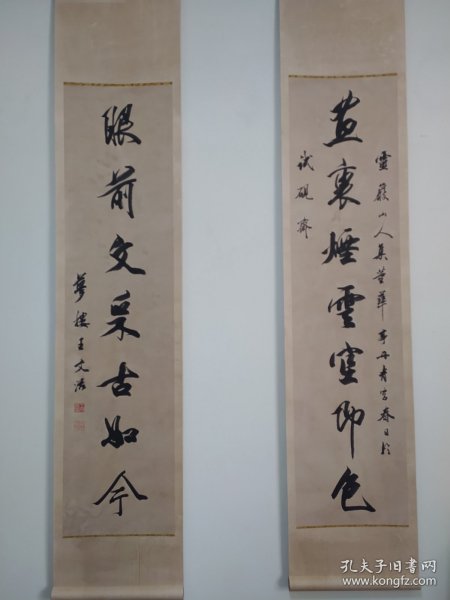 畫裏煙雲空即色
靈巖山人集董華亭
春日於
試硯齋
眼前文采古如今
夢樓王文治
孔夫子旧书网
www.kongfz.com